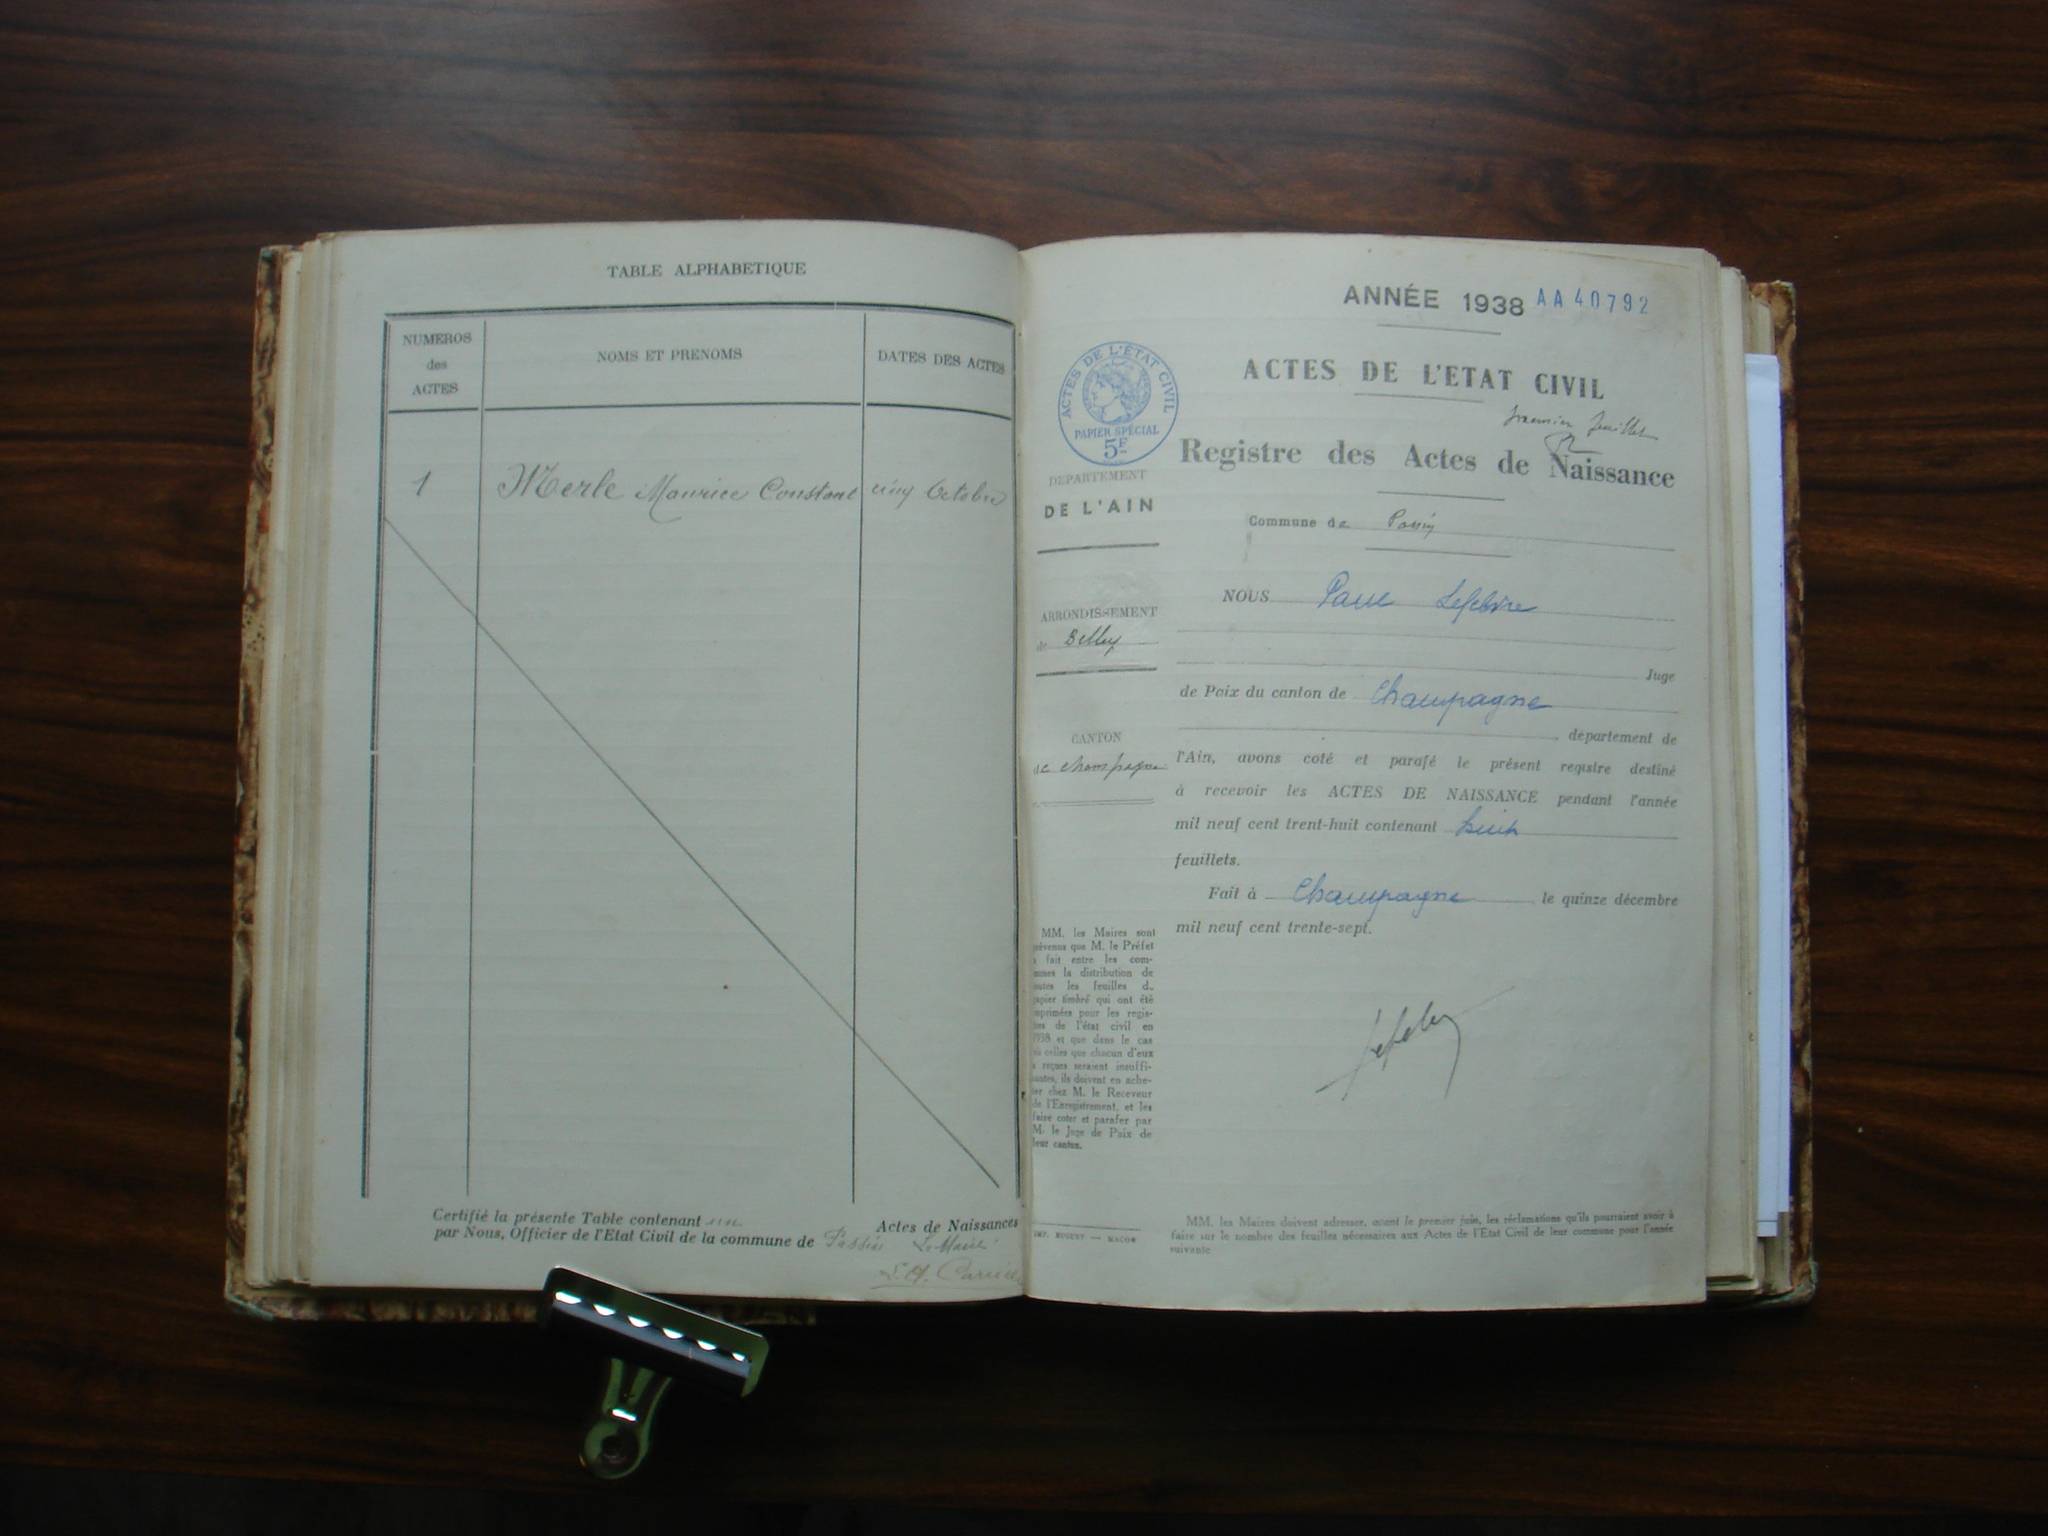 TABLE ALPHABETIQUE
NUMEROS
des
ACTES
NOMS ET PRENOMS
DATES DES ACTES
1 Merle Maurice Constant cinq Octobre
Certifié la présente Table contenant un Actes de Naissances
par Nous, Officier de l'Etat Civil de la commune de Passin Le Maire
ANNÉE 1938 AA 40792
ACTES DE L'ÉTAT CIVIL
PAPIER SPÉCIAL
5F
ACTES DE L'ETAT CIVIL
premier feuillet
Registre des Actes de Naissance
DEPARTEMENT
DE L'AIN
Commune de Passin
ARRONDISSEMENT
de Belley
CANTON
de Champagne
NOUS Paul Lefebvre
Juge
de Paix du canton de Champagne
département de
l'Ain, avons coté et parafé le présent registre destiné
à recevoir les ACTES DE NAISSANCE pendant l'année
mil neuf cent trent-huit contenant huit
feuillets.
Fait à Champagne le quinze décembre
mil neuf cent trente-sept.
MM. les Maires sont
prévenus que M. le Préfet
a fait entre les com-
munes la distribution de
toutes les feuilles de
papier timbré qui ont été
imprimées pour les regis-
tres de l'état civil en
1938 et que dans le cas
où celles que chacun d'eux
a reçues seraient insuffi-
santes, ils doivent en ache-
ter chez M. le Receveur
de l'Enregistrement, et les
faire coter et parafer par
M. le Juge de Paix de
leur canton.
IMP. BUGUET — MACON
MM. les Maires doivent adresser, avant le premier juin, les réclamations qu'ils pourraient avoir à
faire sur le nombre des feuilles nécessaires aux Actes de l'Etat Civil de leur commune pour l'année
suivante